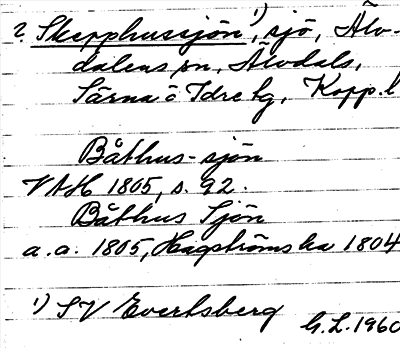 2. Skepphussjön¹), sjö, Älv-
dalens sn, Älvdals,
Särna o Idre tg, Kopp. l
Båthus-sjön
VAH 1805, s. 92.
Båthus Sjön
a.a. 1805, Hagströms ka 1804
¹) SV Evertsberg
G.L. 1960